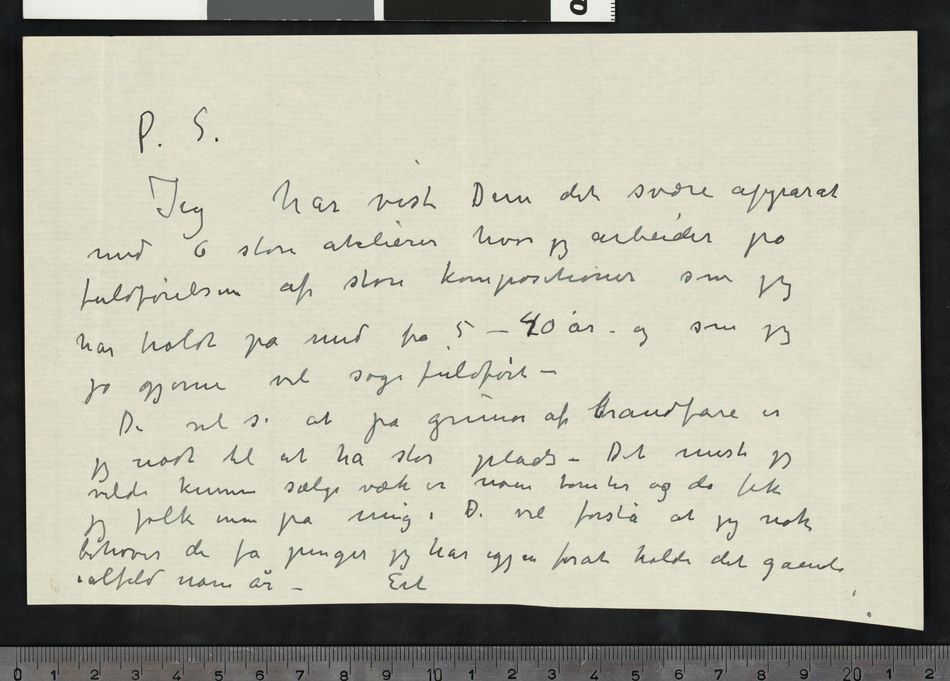 P. S.
Jeg har vist Dem det svære apparat
med 6 store atelierer hvor jeg arbeider på
fuldførelsen af store kompositioner som jeg
har holdt på med fra 5 – 40 år – og som jeg
jo gjerne vil søge fuldført –
De vil se at på grund af brandfare er
jeg nødt til at ha stor plads – Det meste jeg
vilde kunne sælge væk er nogen tomter og da fik
jeg folk inn på mig. De vil forstå at jeg nok
behøver de få penger jeg har igjen forat holde det gående
ialfald noen år –